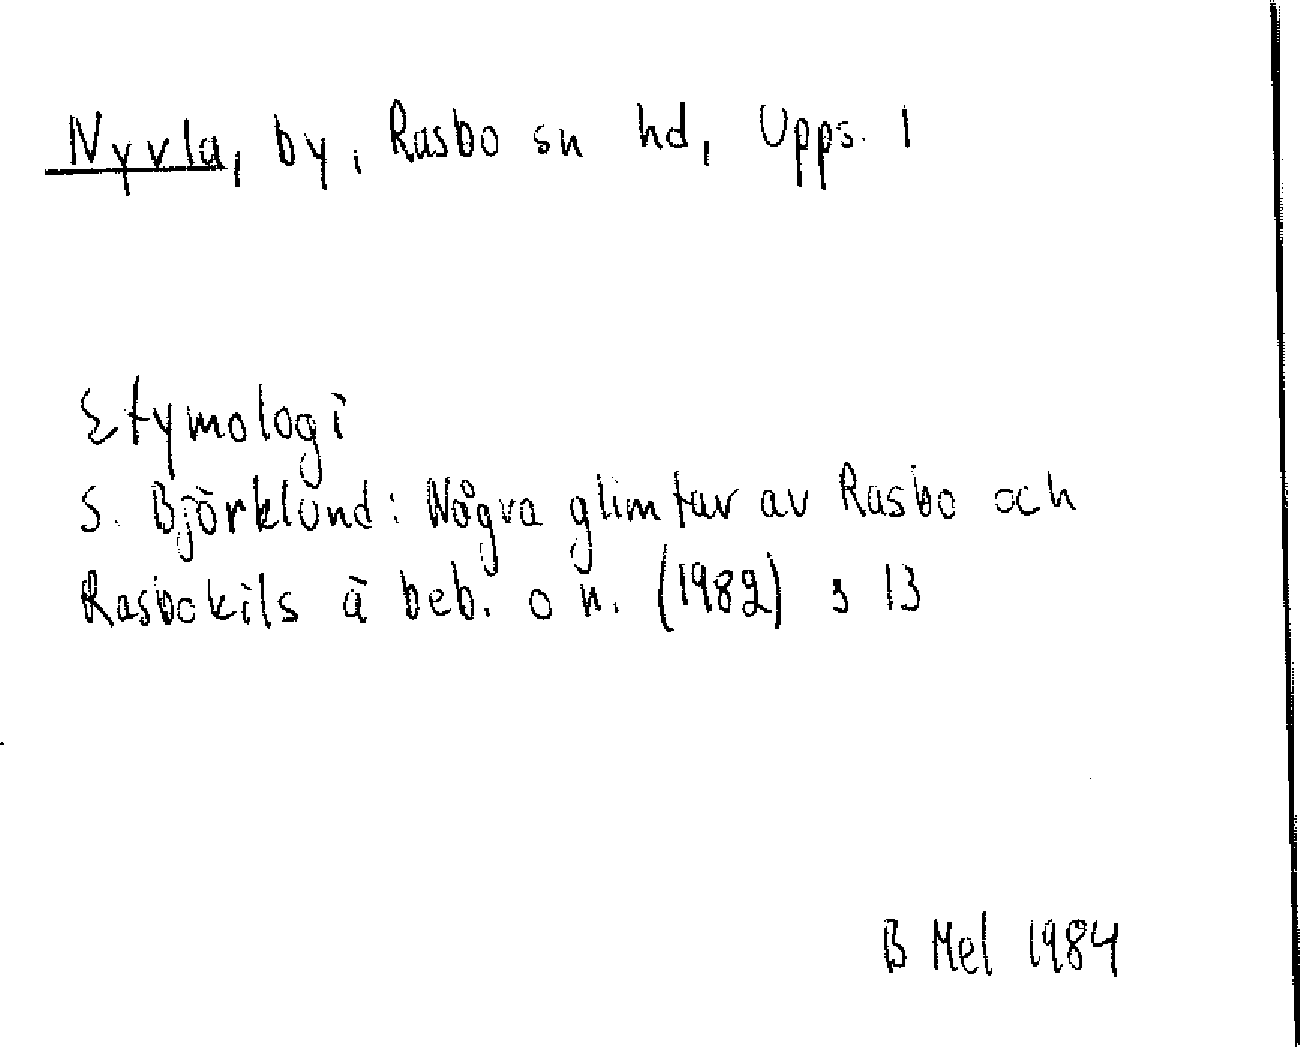 Nyvla, by, Rasbo sn hd, Upps. l
Etymologi
S. Björklund: Några glimtar av Rasbo och
Rasbokils ä beb. o n. (1982) s 13
B Mel 1984